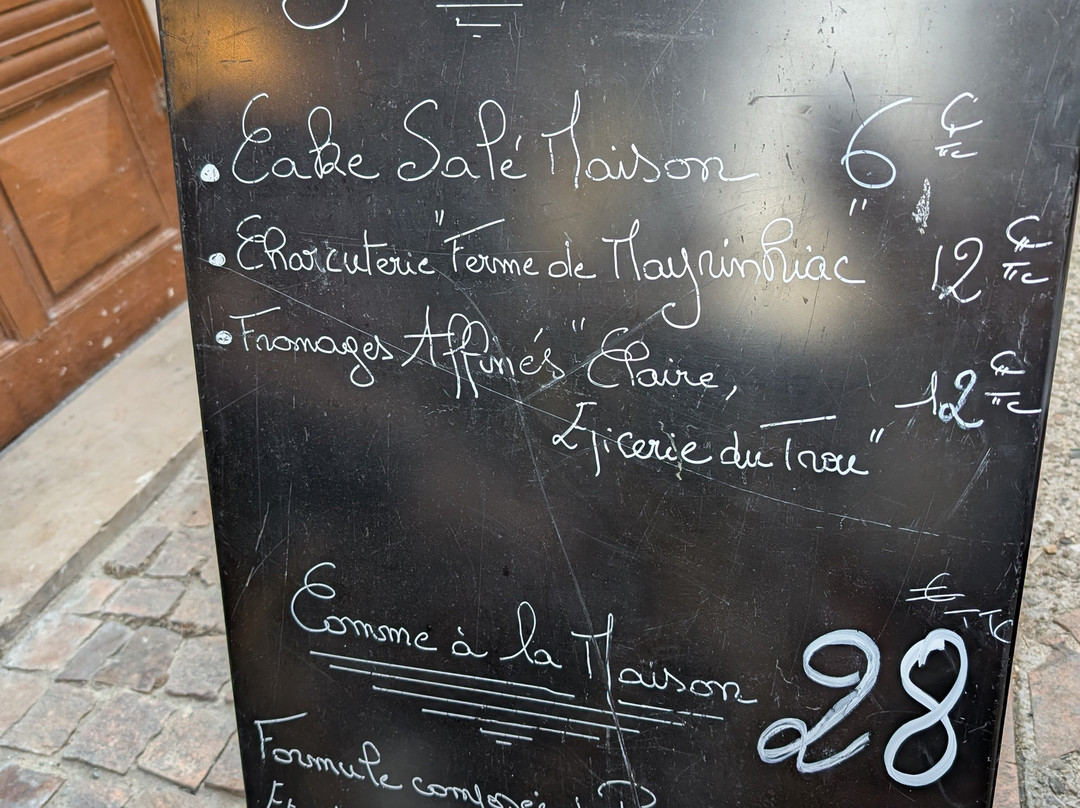 • Cake Salé Maison 6 € TTC
• Charcuterie "Ferme de Mayrinhiac" 12 € TTC
• Fromages Affinés "Claire,
Epicerie du Trou" 12 € TTC
Comme à la Maison 28 € TTC
Formule composée